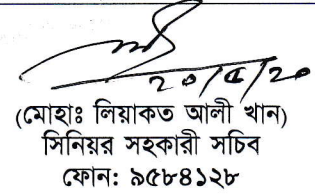 ২০/৫/২০
(মোহাঃ লিয়াকত আলী খান)
সিনিয়র সহকারী সচিব
ফোন: ৯৫৮৪১২৮